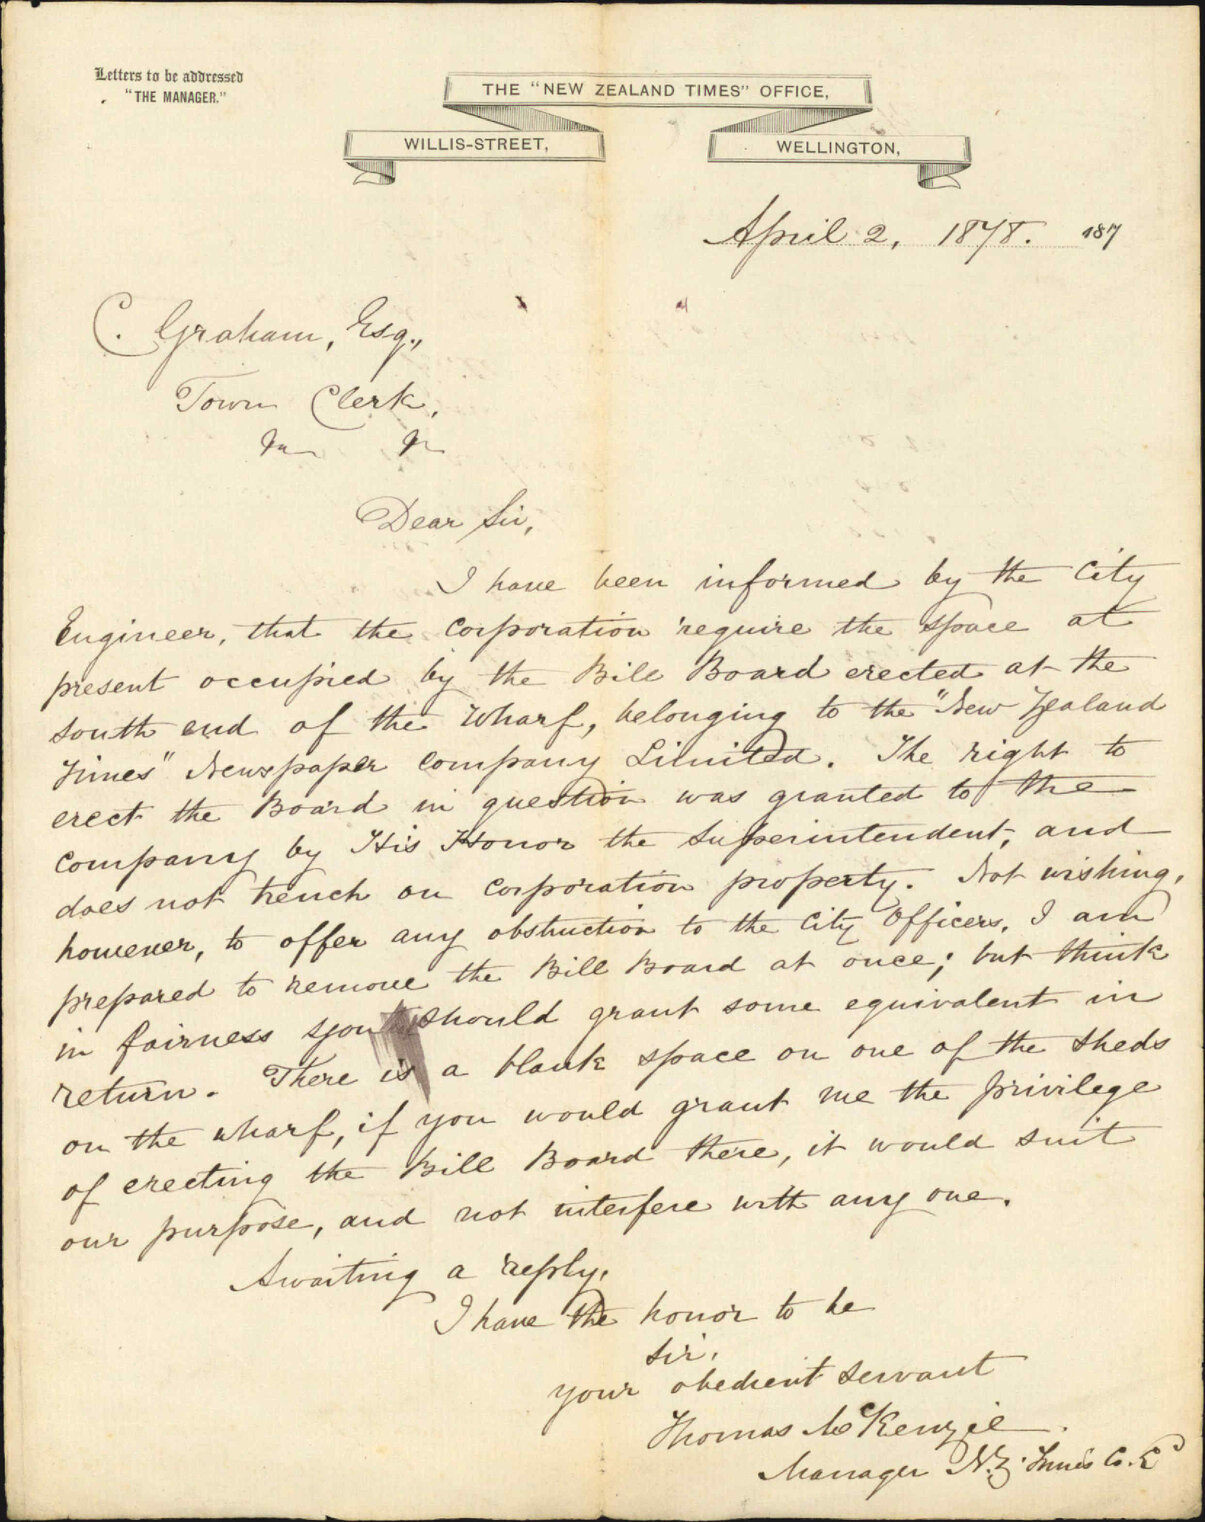 Letters to be addressed
"THE MANAGER."
THE "NEW ZEALAND TIMES" OFFICE,
WILLIS-STREET,
WELLINGTON,
April 2, 1878. 187
C. Graham, Esq.,
Town Clerk,
Dear Sir,
I have been informed by the City
Engineer, that the Corporation require the space at
present occupied by the Bill Board erected at the
south end of the Wharf, belonging to the "New Zealand
Times" Newspaper Company Limited. The right to
erect the Board in question was granted to the
Company by His Honor the Superintendent, and
does not trench on Corporation property. Not wishing,
however, to offer any obstruction to the City Officers, I am
prepared to remove the Bill Board at once; but think
in fairness you should grant some equivalent in
return. There is a blank space on one of the sheds
on the wharf, if you would grant me the privilege
of erecting the Bill Board there, it would suit
our purpose, and not interfere with any one.
Awaiting a reply,
I have the honor to be
Sir,
your obedient servant
Thomas McKenzie
Manager N.Z. Times Co. L